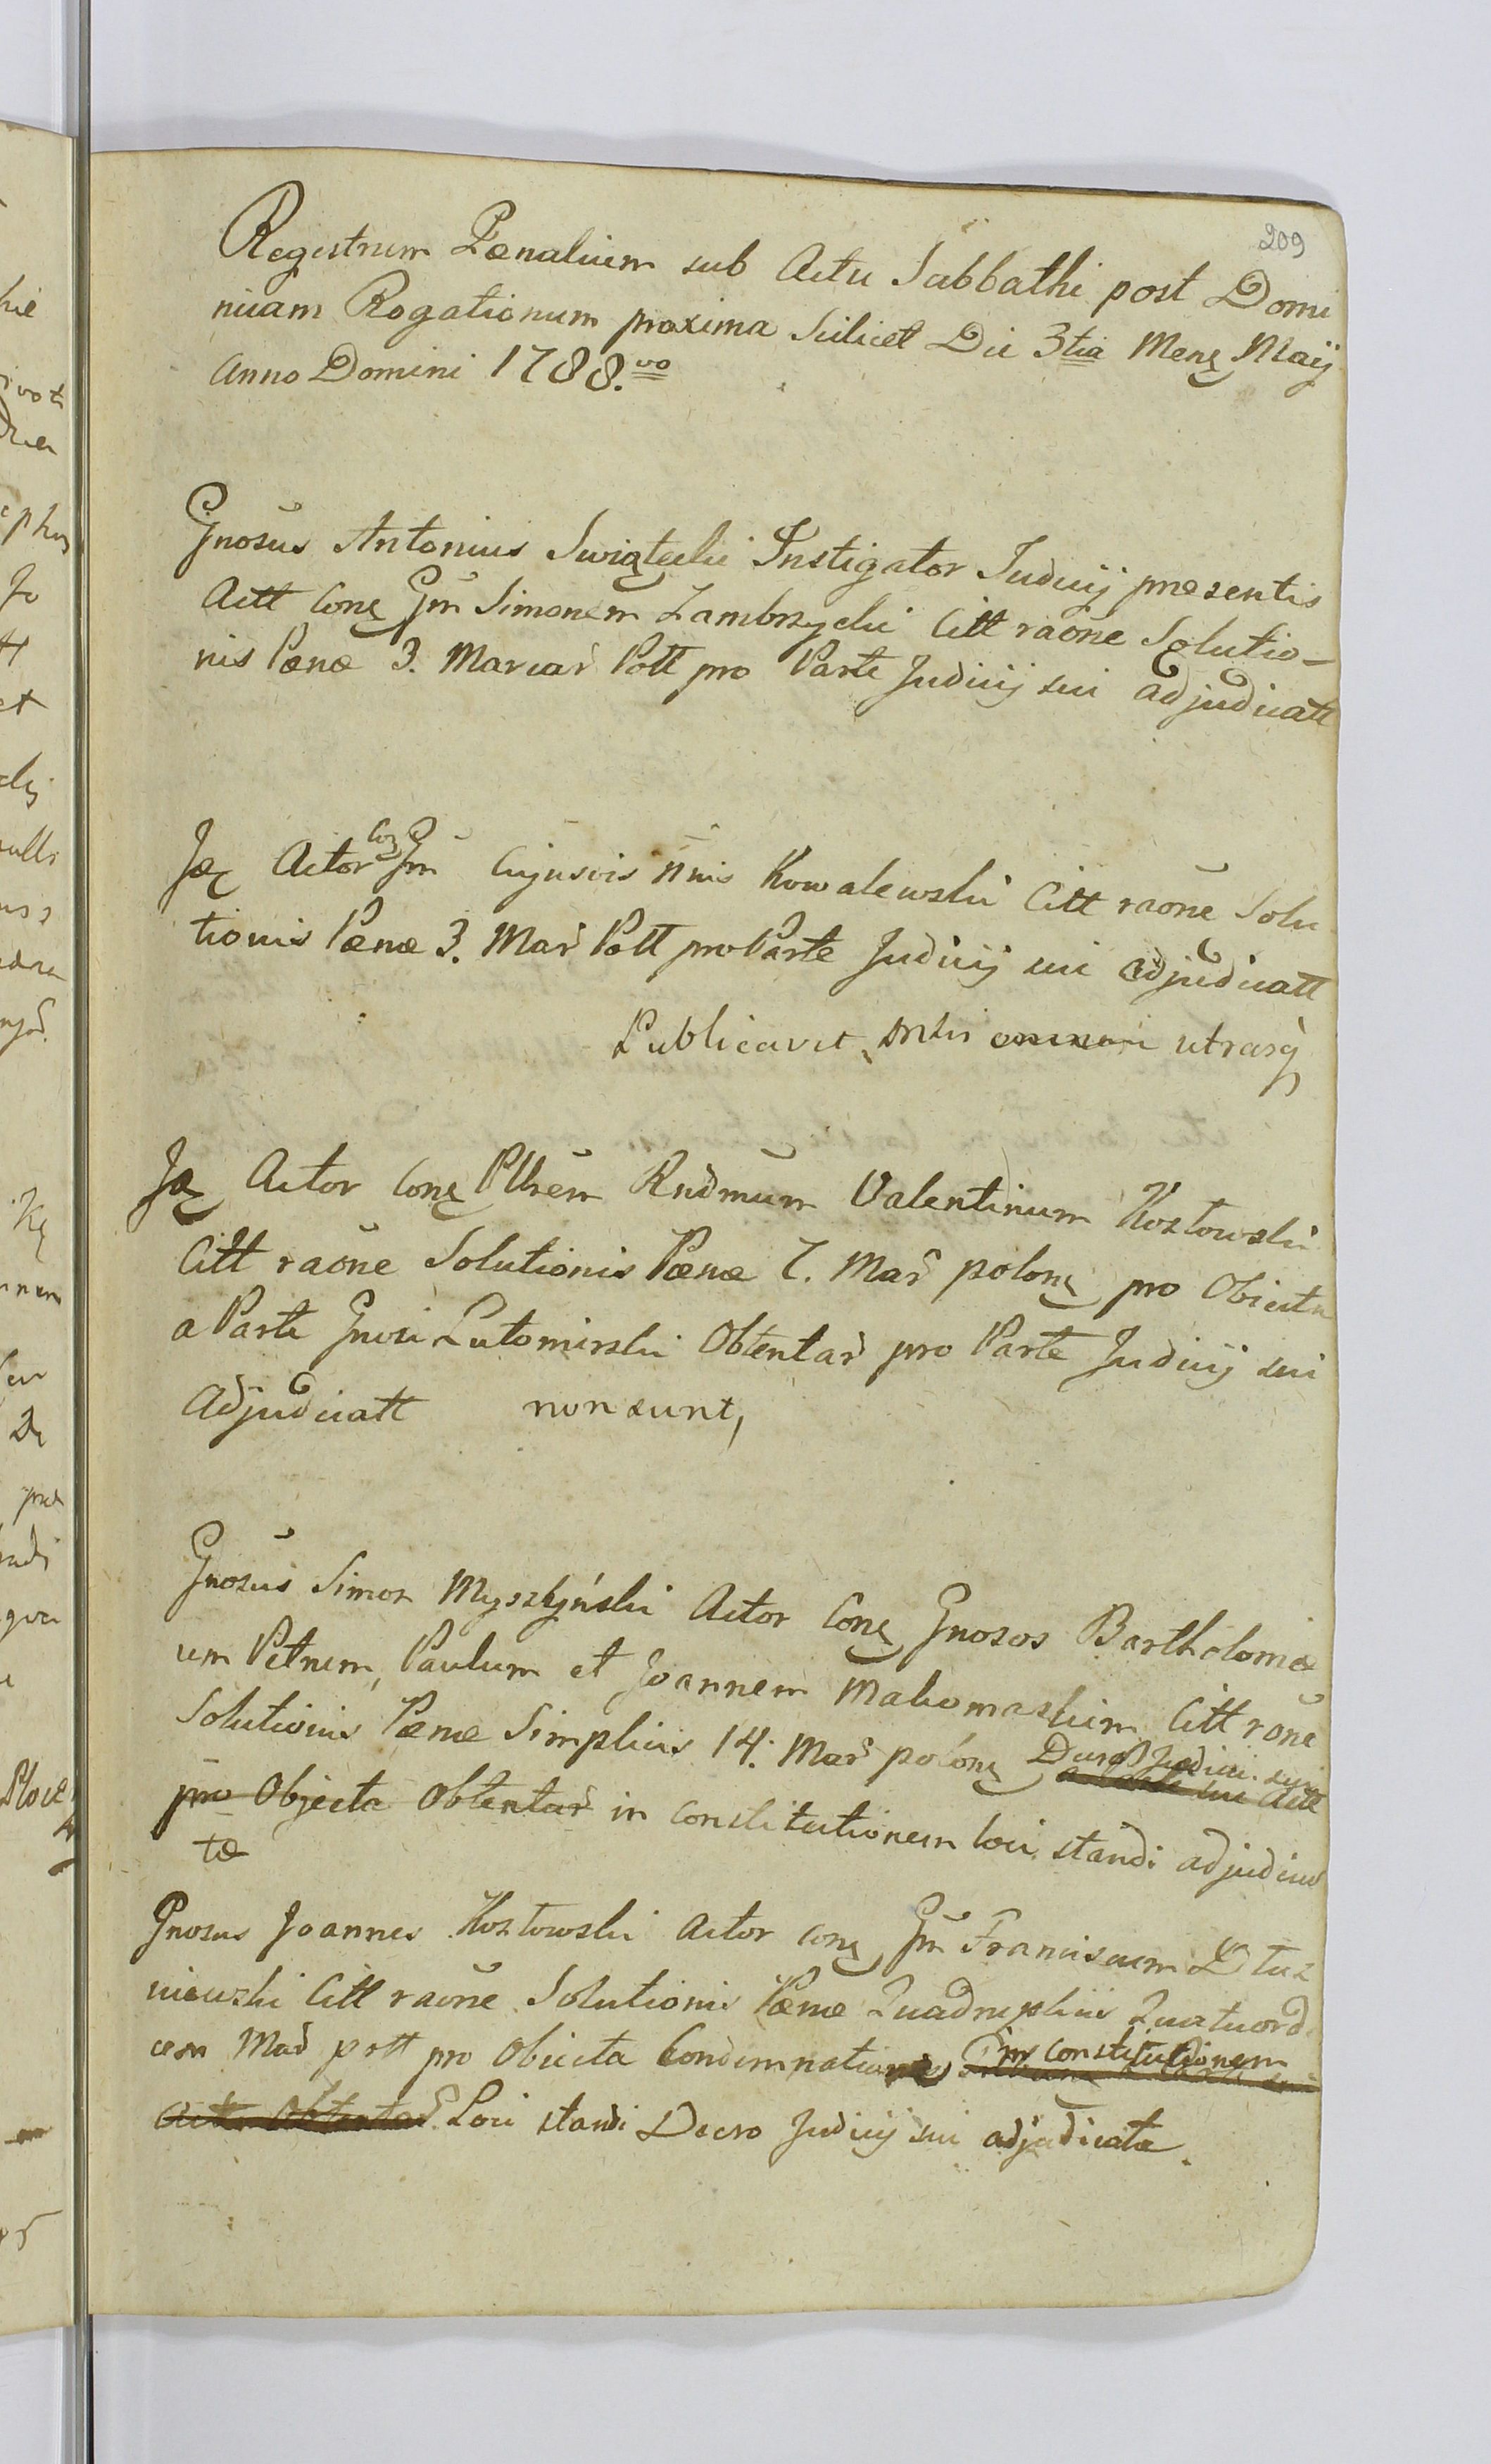 209
Registrum Pænalium sub Actu Sabbathi post Domi
nicam Rogationum proxima Scilicet Die 3tia Mens Maij
Anno Domini 1788.vo
Gnosus Antonius Swiątecki Instigator Judicij præsentis
Actt Cone Gm Simonem Zambrzycki Citt raone Solutio-
nis Pænæ 3. Marcar Poll pro Parte Judicij sui adjudicatt
Jdę Actor Cone Gm Cujusvis nnis Kowalewski Citt raone Solu
tionis Pænæ 3. Mar Poll pro Parte Judicij sui adjudicatt
Publicavit utrasq
Jdę Actor Cone Plrem Rndmum Valentinum Kozłowski
Citt raone Solutionis Pænæ 7. Mar polon pro Objecta
a Parte Gnosi Lutomirski Obtentar pro Parte Judicij sui
Adjudicatt non sunt,
Gnosus Simon Myszłyński Actor Cone Gnosos Bartholomæ
um Petrum, Paulum et Joannem Makomaskim Citt rone
Solutionis Pænæ Simplicis 14. Mar polon Judici sui
pro Objecta Obtentar in Constitutionem loci standi adjudica
tæ
Gnosus Joannes Kozłowski Actor cone Gm Franciscum Dłuż
niewski Citt raone Solutionis Pænæ Quadruplicis Quatuorde
cem Mar poll pro Objecta Condemnationis in Constitutionem
Actt Obtentar Loci standi Decro Judicij sui adjudicatæ.